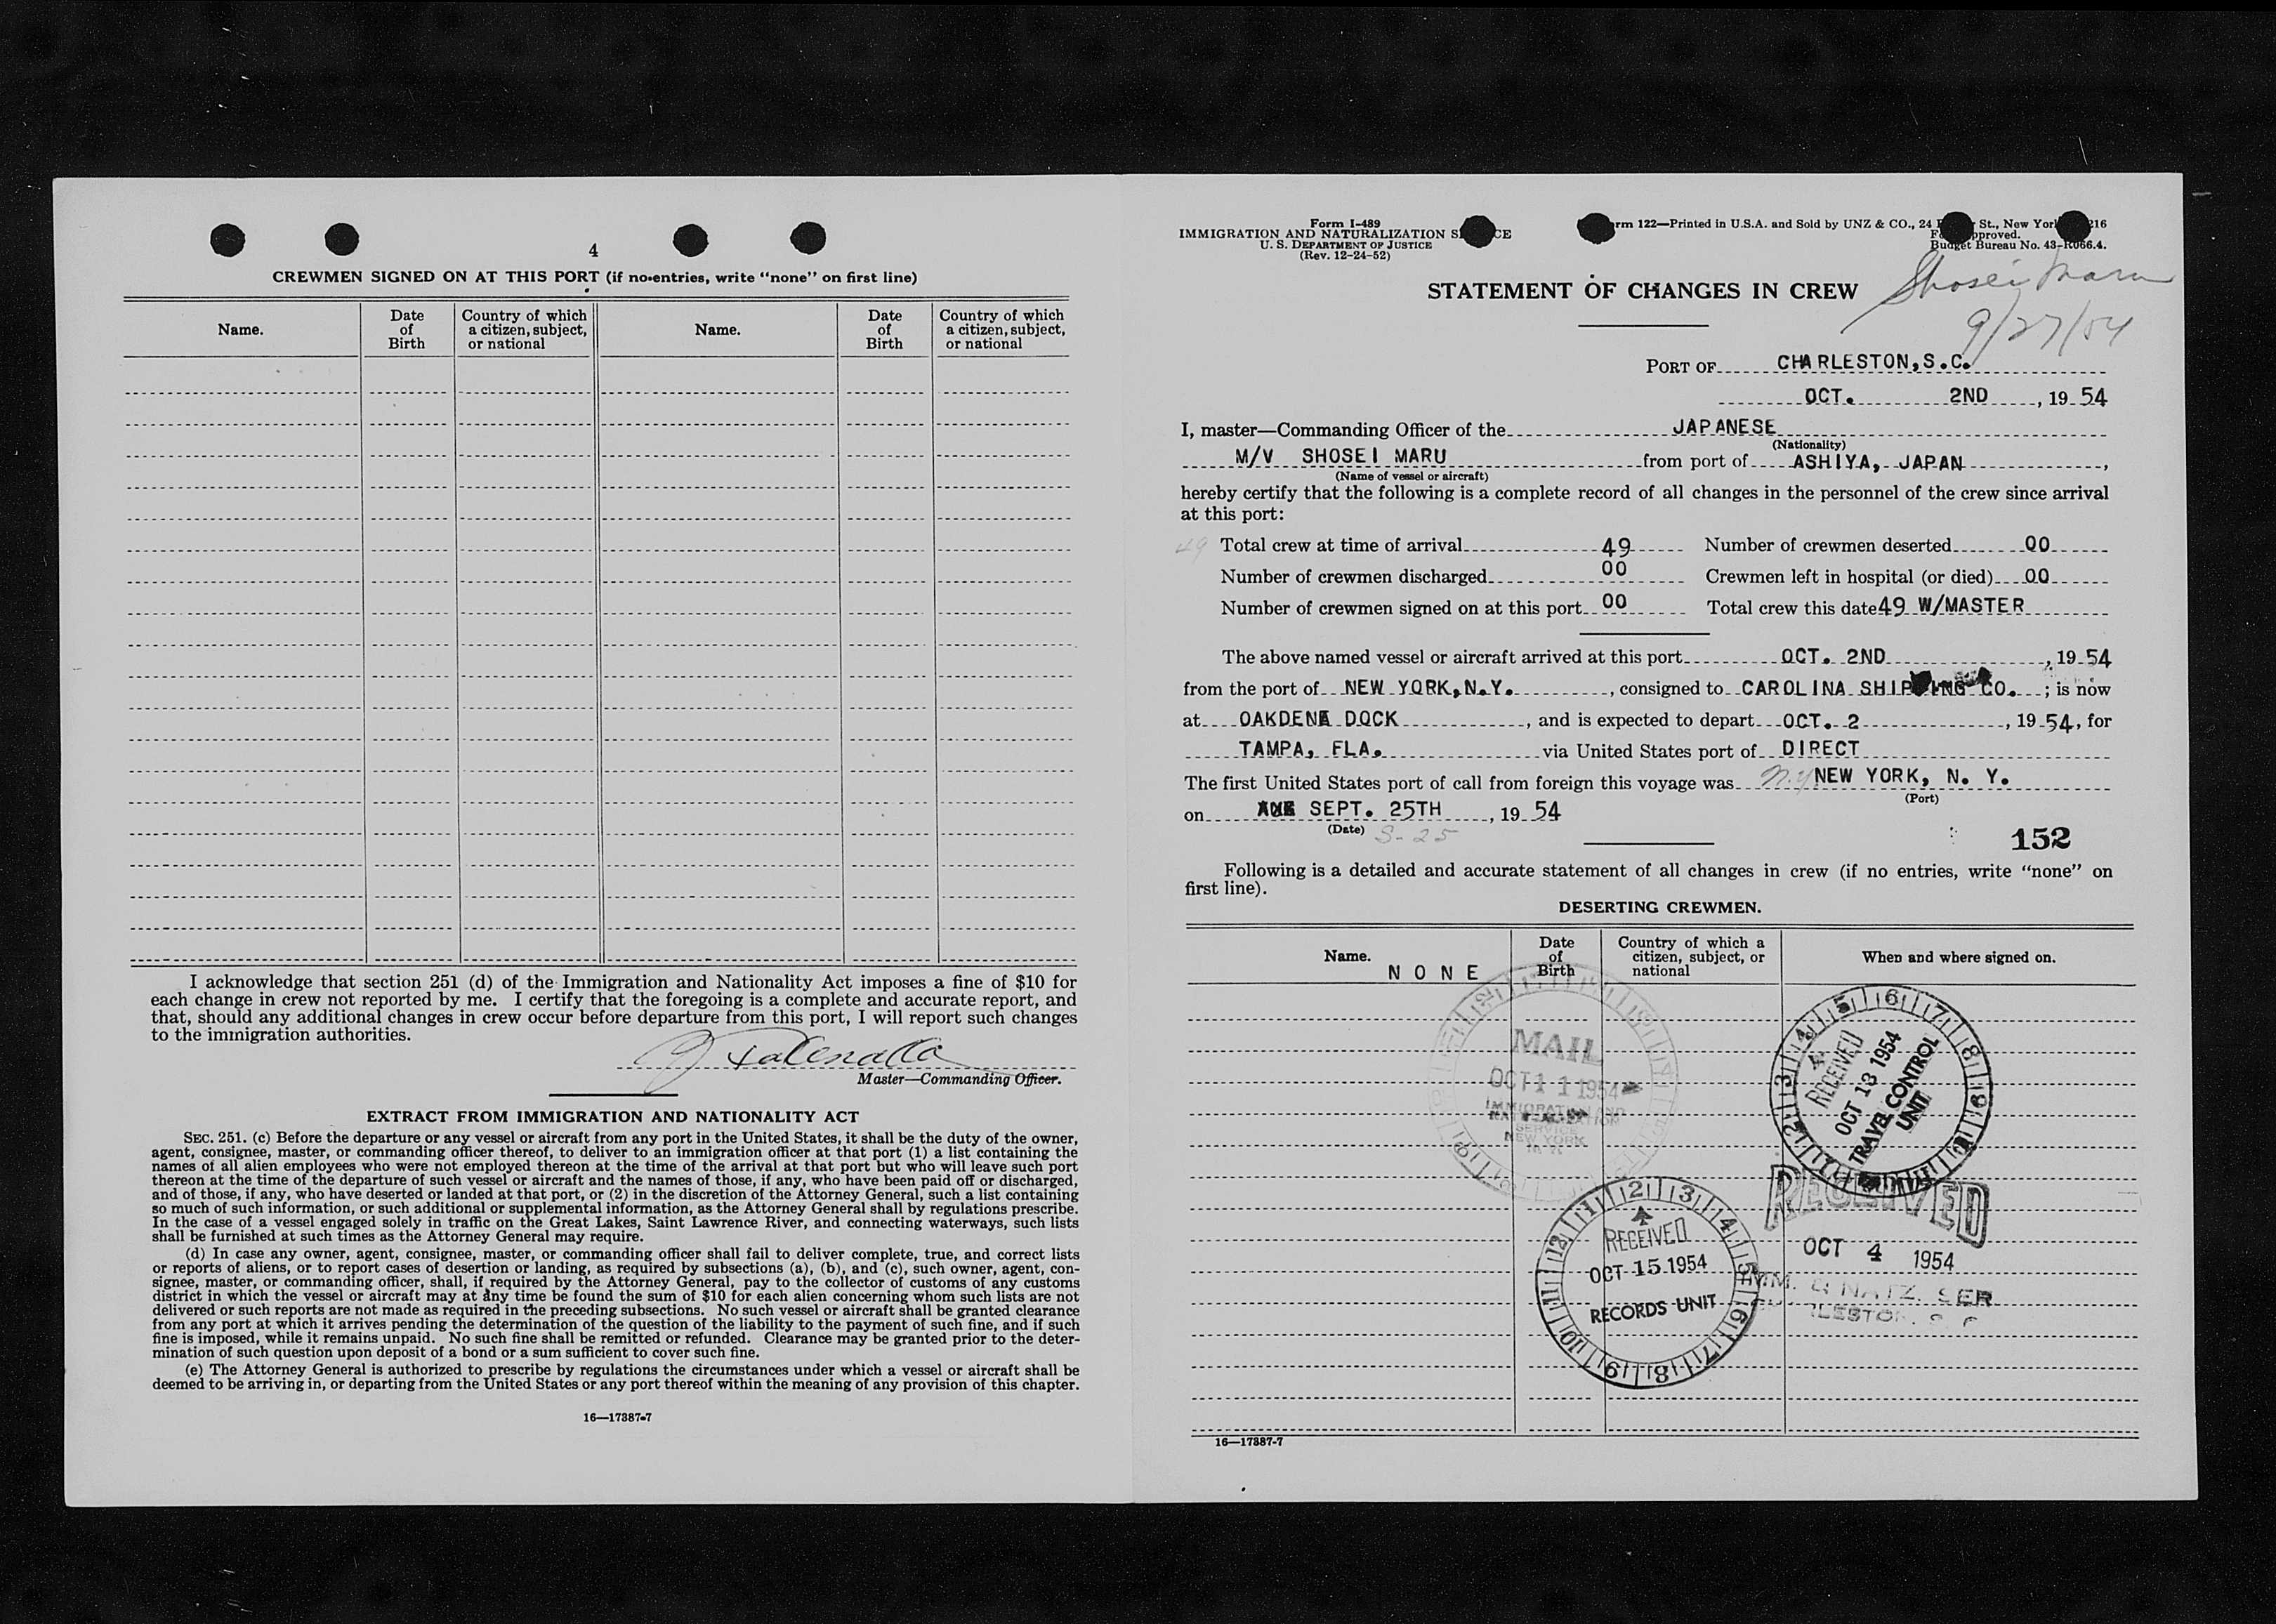 4
CREWMEN SIGNED ON AT THIS PORT (if no entries, write “none” on first line)
Name.
Date of Birth
Country of which a citizen, subject, or national
Name.
Date of Birth
Country of which a citizen, subject, or national
I acknowledge that section 251 (d) of the Immigration and Nationality Act imposes a fine of $10 for
each change in crew not reported by me. I certify that the foregoing is a complete and accurate report, and
that, should any additional changes in crew occur before departure from this port, I will report such changes
to the immigration authorities.
Master—Commanding Officer.
EXTRACT FROM IMMIGRATION AND NATIONALITY ACT
SEC. 251. (c) Before the departure or any vessel or aircraft from any port in the United States, it shall be the duty of the owner,
agent, consignee, master, or commanding officer thereof, to deliver to an immigration officer at that port (1) a list containing the
names of all alien employees who were not employed thereon at the time of the arrival at that port but who will leave such port
thereon at the time of the departure of such vessel or aircraft and the names of those, if any, who have been paid off or discharged,
and of those, if any, who have deserted or landed at that port, or (2) in the discretion of the Attorney General, such a list containing
so much of such information, or such additional or supplemental information, as the Attorney General shall by regulations prescribe.
In the case of a vessel engaged solely in traffic on the Great Lakes, Saint Lawrence River, and connecting waterways, such lists
shall be furnished at such times as the Attorney General may require.
(d) In case any owner, agent, consignee, master, or commanding officer shall fail to deliver complete, true, and correct lists
or reports of aliens, or to report cases of desertion or landing, as required by subsections (a), (b), and (c), such owner, agent, con-
signee, master, or commanding officer, shall, if required by the Attorney General, pay to the collector of customs of any customs
district in which the vessel or aircraft may at any time be found the sum of $10 for each alien concerning whom such lists are not
delivered or such reports are not made as required in the preceding subsections. No such vessel or aircraft shall be granted clearance
from any port at which it arrives pending the determination of the question of the liability to the payment of such fine, and if such
fine is imposed, while it remains unpaid. No such fine shall be remitted or refunded. Clearance may be granted prior to the deter-
mination of such question upon deposit of a bond or a sum sufficient to cover such fine.
(e) The Attorney General is authorized to prescribe by regulations the circumstances under which a vessel or aircraft shall be
deemed to be arriving in, or departing from the United States or any port thereof within the meaning of any provision of this chapter.
16—17387-7
Form I-489
IMMIGRATION AND NATURALIZATION
U. S. DEPARTMENT OF JUSTICE
(Rev. 12-24-52)
122—Printed in U.S.A. and Sold by UNZ & CO., 24 St., New York
Budget Bureau No. 43-R066.4.
Shosei Maru
9/27/54
STATEMENT OF CHANGES IN CREW
PORT OF CHARLESTON, S.C.
OCT. 2ND, 19 54
I, master—Commanding Officer of the JAPANESE
(Nationality)
M/V SHOSEI MARU from port of ASHIYA, JAPAN,
(Name of vessel or aircraft)
hereby certify that the following is a complete record of all changes in the personnel of the crew since arrival
at this port:
49 Total crew at time of arrival 49 Number of crewmen deserted 00
Number of crewmen discharged 00 Crewmen left in hospital (or died) 00
Number of crewmen signed on at this port 00 Total crew this date 49 W/MASTER
The above named vessel or aircraft arrived at this port OCT. 2ND, 19 54
from the port of NEW YORK, N.Y., consigned to CAROLINA SHIPPING CO. ; is now
at OAKDENE DOCK, and is expected to depart OCT. 2, 19 54, for
TAMPA, FLA. via United States port of DIRECT
The first United States port of call from foreign this voyage was N.Y NEW YORK, N. Y.
(Port)
on SEPT. 25TH, 19 54
(Date) S-25
152
Following is a detailed and accurate statement of all changes in crew (if no entries, write “none” on
first line).
DESERTING CREWMEN.
Name.
Date of Birth
Country of which a citizen, subject, or national
When and where signed on.
NONE
MAIL
OCT 11 1954
IMMIGRATION AND
NATURALIZATION
SERVICE
NEW YORK
RECEIVED
OCT 13 1954
TRAVEL CONTROL
UNIT
RECEIVED
OCT 15 1954
RECORDS UNIT
RECEIVED
OCT 4 1954
IMM. & NATZ. SER
16—17387-7